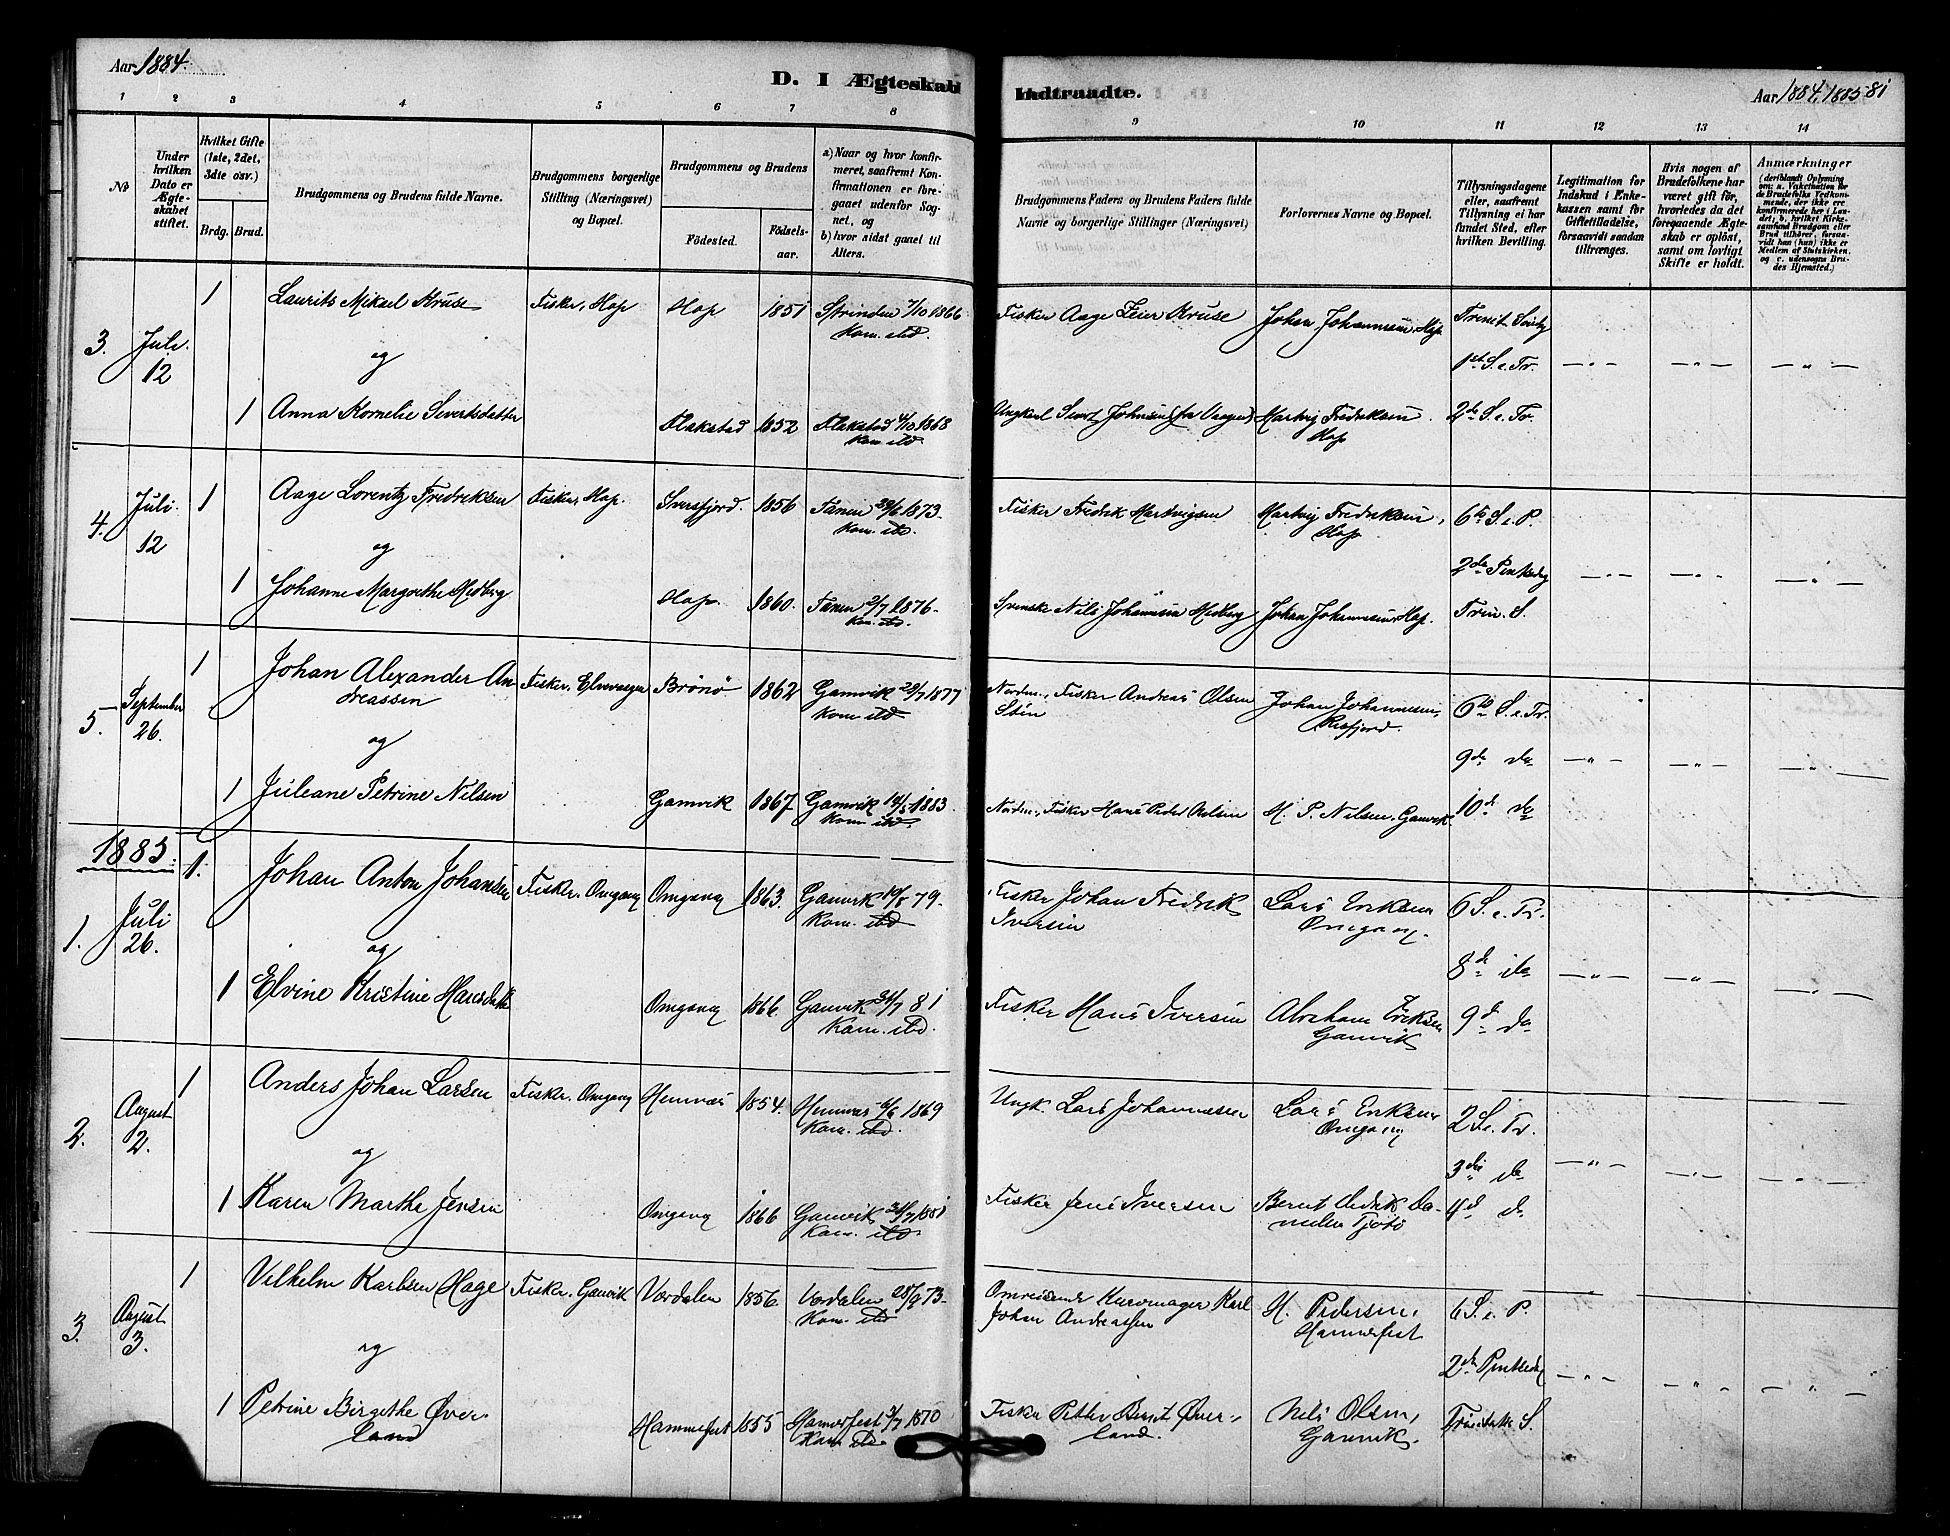 Aar 1884.
D. I Ægteskab
Indtraadte.
Aar 1884, 1885 81
1 2 3 4 5 6 7 8
9 10 11 12 13 14
№
Under hvilken Dato er Ægteskabet stiftet.
Hvilket Gifte (1ste, 2det, 3die osv.)
Brdg. Brud.
Brudgommens og Brudens fulde Navne.
Brudgommens borgerlige Stilling (Næringsvei) og Bopæl.
Brudgommens og Brudens
Fødested.
Fødselsaar.
a) Naar og hvor konfirmeret, saafremt Konfirmationen er foregaaet udenfor Sognet, og
b) hvor sidst gaaet til Alters.
Brudgommens Faders og Brudens Faders fulde Navne og borgerlige Stillinger (Næringsvei)
Forlovernes Navne og Bopæl.
Tillysningsdagene eller, saafremt Tillysning ei har fundet Sted, efter hvilken Bevilling.
Legitimation for Indskud i Enkekassen samt for Giftetilladelse, forsaavidt saadan tiltrænges.
Hvis nogen af Brudefolkene har været gift før, hvorledes da det foregaaende Ægteskab er opløst, samt om lovligt Skifte er holdt.
Anmærkninger (deriblandt Oplysning om: a. Vakcination for de Brudefolks Vedkommende, der ikke ere konfirmerede her i Landet; b. hvilket Kirkesamfund Brudgom eller Brud tilhører, forsaavidt han (hun) ikke er Medlem af Statskirken, og c. udensogns Brudes Hjemsted.)
3. Juli 12
1 Laurits Mikael Kruse Fisker, Hop Hop 1851 Strinden 7/10 1866 Kom. ibd. Fisker Aage Feier Kruse Johan Johannesen, Hop Trenit. Sönd.
og
1st. S. e. Tr. — " — — " — — " —
1 Anna Kornelie Sivertsdatter Flakstad 1852 Flakstad 4/10 1868 Kom. ibd. Ungkarl Sivert Johnsen (fra Vaagan) Hartvig Fredriksen Hop 2de S. e. Tr.
4. Juli 12
1 Aage Lorentz Fredriksen Fisker, Hop. Iversfjord. 1856 Tanen 1873. Kom. ibd. Fisker Fredrik Hartvigsen Hartvig Fredriksen, Hop 6te S. e. P.
og
2den Pintsedag — " — — " — — " —
1 Johanne Margrethe Hedberg Hop. 1860. Tanen 2/7 1876. Kom. ibd. Svenske Nils Johannsen Hedberg Johan Johannesen, Hop. Trin. S.
5. September 26.
1 Johan Alexander Andreassen Fisker, Elvevaagen Brönö 1862 Gamvik 29/7 1877 Kom. ibd. Nordm., Fisker Andreas Olsen Stön Johan Johannesen, Risfjord. 6te S. e. Tr.
og
9de do — " — — " — — " —
1 Juleane Petrine Nilsen Gamvik 1867 Gamvik 1883. Kom. ibd. Nordm., Fisker Hans Peder Nilsen H. P. Nilsen, Gamvik 10de do
1885.
1. Juli 26.
1. Johan Anton Johansen Fisker, Omgang Omgang 1863. Gamvik 79. Kom. ibd Fisker Johan Fredrik Iversen Lars Eriksen Omgang. 6 S. e. Tr.
og
8de do — " — — " — — " —
1 Elvine Kristine Hansdatter Omgang 1866. Gamvik 31/7 81 Kom. ibd. Fisker Hans Iversen Abraham Eriksen Gamvik 9d do
2. August 2.
1 Anders Johan Larsen Fisker. Omgang Hemnæs 1854. Hemnæs 1869 Kom. ibd. Ungk. Lars Johannesen Lars Eriksen Omgang 2 S. e. Tr.
og
3die do — " — — " — — " —
1 Karen Martha Jensen Omgang 1866 Gamvik 31/7 1881 Kom. ibd. Fisker Jens Iversen Bernt Didrik Danielsen Tjötö 4d do
3. August 3.
1 Vilhelm Karlsen Hage Fisker. Gamvik Værdalen 1856. Værdalen 28/9 73. Kom. ibd Omreisende Kurvmager Karl Johan Andreassen H. Pedersen, Hammerfest 6 S. e. P
og
2den Pintsedag — " — — " — — " —
1 Petrine Birgethe Överland Hammerfest 1855 Hamerfest 3/7 1870 Kom. ibd. Fisker Petter Bernt Överland. Nils Olsen, Gamvik. Trinitatis S.